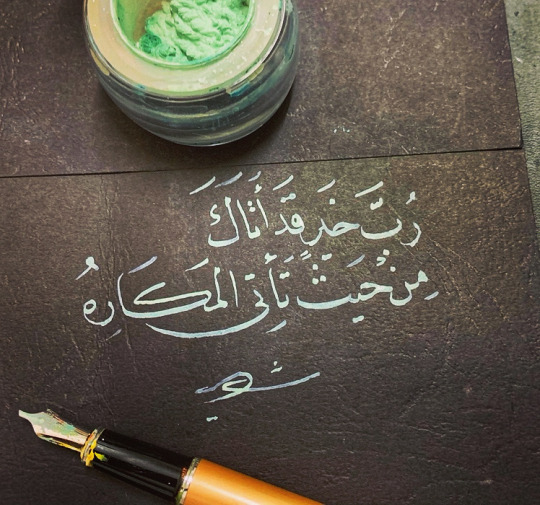 رُبَّ خَيرٍ قَدْ أَتَاكَ
مِنْ حَيْثُ تَأْتِي المَكَارِهُ